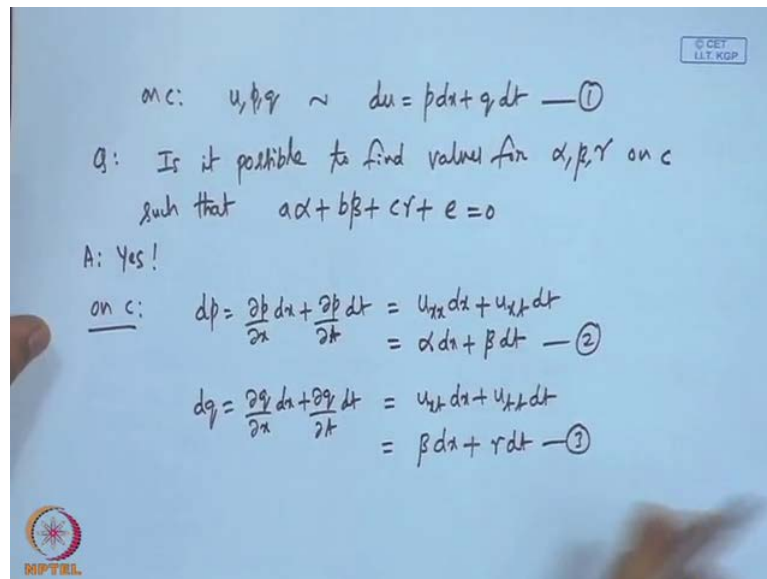 © CET
I.I.T. KGP
on c: u, p, q ~ du = p dx + q dt — ①
Q: Is it possible to find values for α, β, γ on c
such that aα + bβ + cγ + e = 0
A: Yes!
on c: dp = ∂p/∂x dx + ∂p/∂t dt = u_xx dx + u_xt dt
= α dx + β dt — ②
dq = ∂q/∂x dx + ∂q/∂t dt = u_xt dx + u_tt dt
= β dx + γ dt — ③
NPTEL